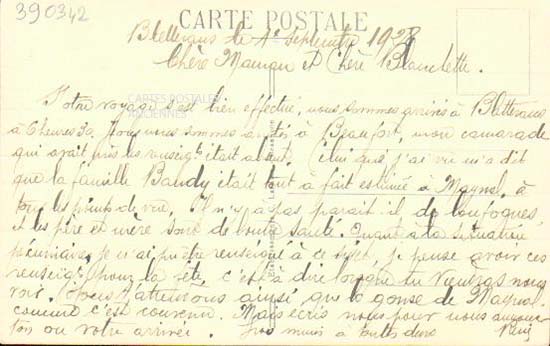 390342
CARTE POSTALE
Bletterans le 1er Septembre 1928
Chère Maman et Chère Blanchette.
CARTES POSTALES
ANCIENNES
Notre voyage s'est bien effectué, nous sommes arrivés à Bletterans
à 6 heures 30. Nous nous sommes arrêtés à Beaufort, mon camarade
qui avait pris les renseigts était absent. Celui que j'ai vu m'a dit
que la famille Baudy était tout à fait estimée à Maynal, à
tous les points de vue. Il n'y a pas parait-il de loufoques,
et les père et mère sont de bonne santé. Quant à la situation
pécuniaire, je n'ai pu être renseigné à ce sujet, je pense avoir ces
renseigts pour la fête, c'est à dire lorsque tu viendras nous
voir. Nous t'attendons ainsi, que la gonse de Maynal
comme c'est convenu. Mais écris nous pour nous
ton ou votre arrivée. Gros mimis à toutes deux